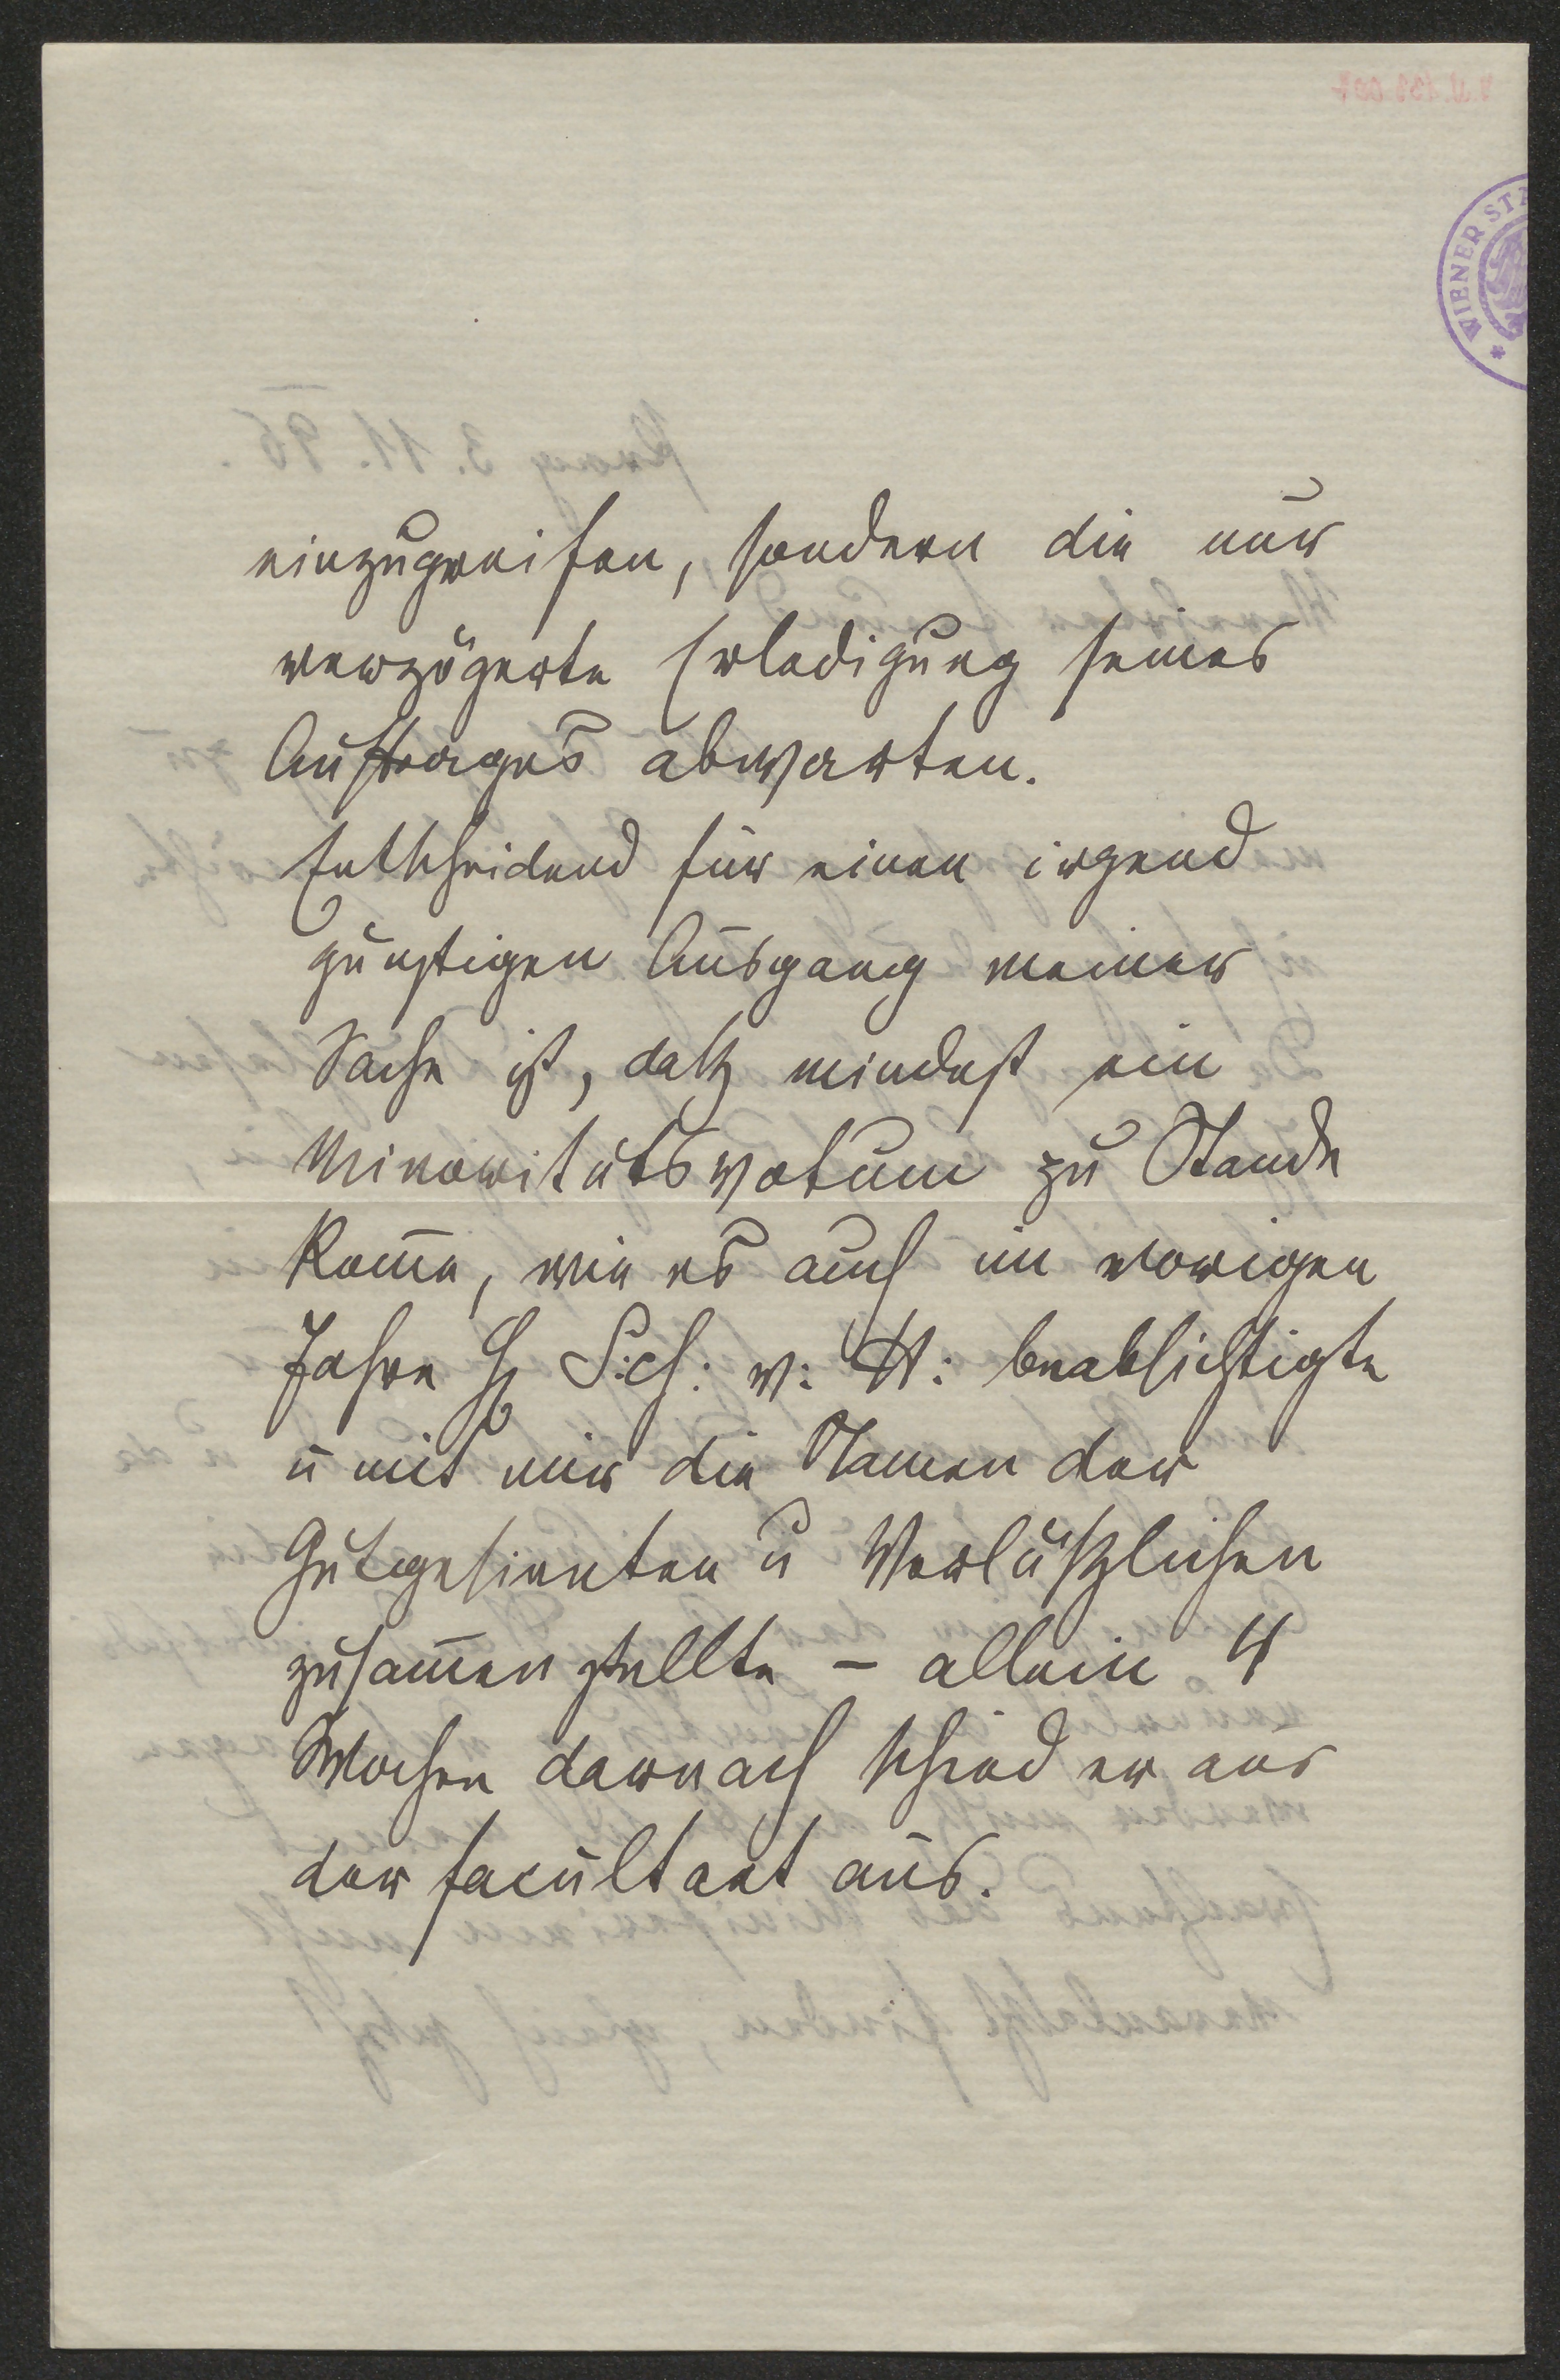 einzugreifen, sondern die nur
verzögerte Erledigung seines
Auftrages abwarten.
Entscheidend für einen irgend
günstigen Ausgang meiner
Sache ist, daß mindest ein
Minoritätsvotum zu Stande
kom̄e, wie es auch im vorigen
Jahre H Sch: v: W: beabsichtigte
u mit mir die Namen der
Gutgesinnten u Verläßlichen
zusam̄enstellte – allein 4
Wochen darnach schied er aus
der Facultaet aus.
WIENER ST
Prag 3. 11. 96.